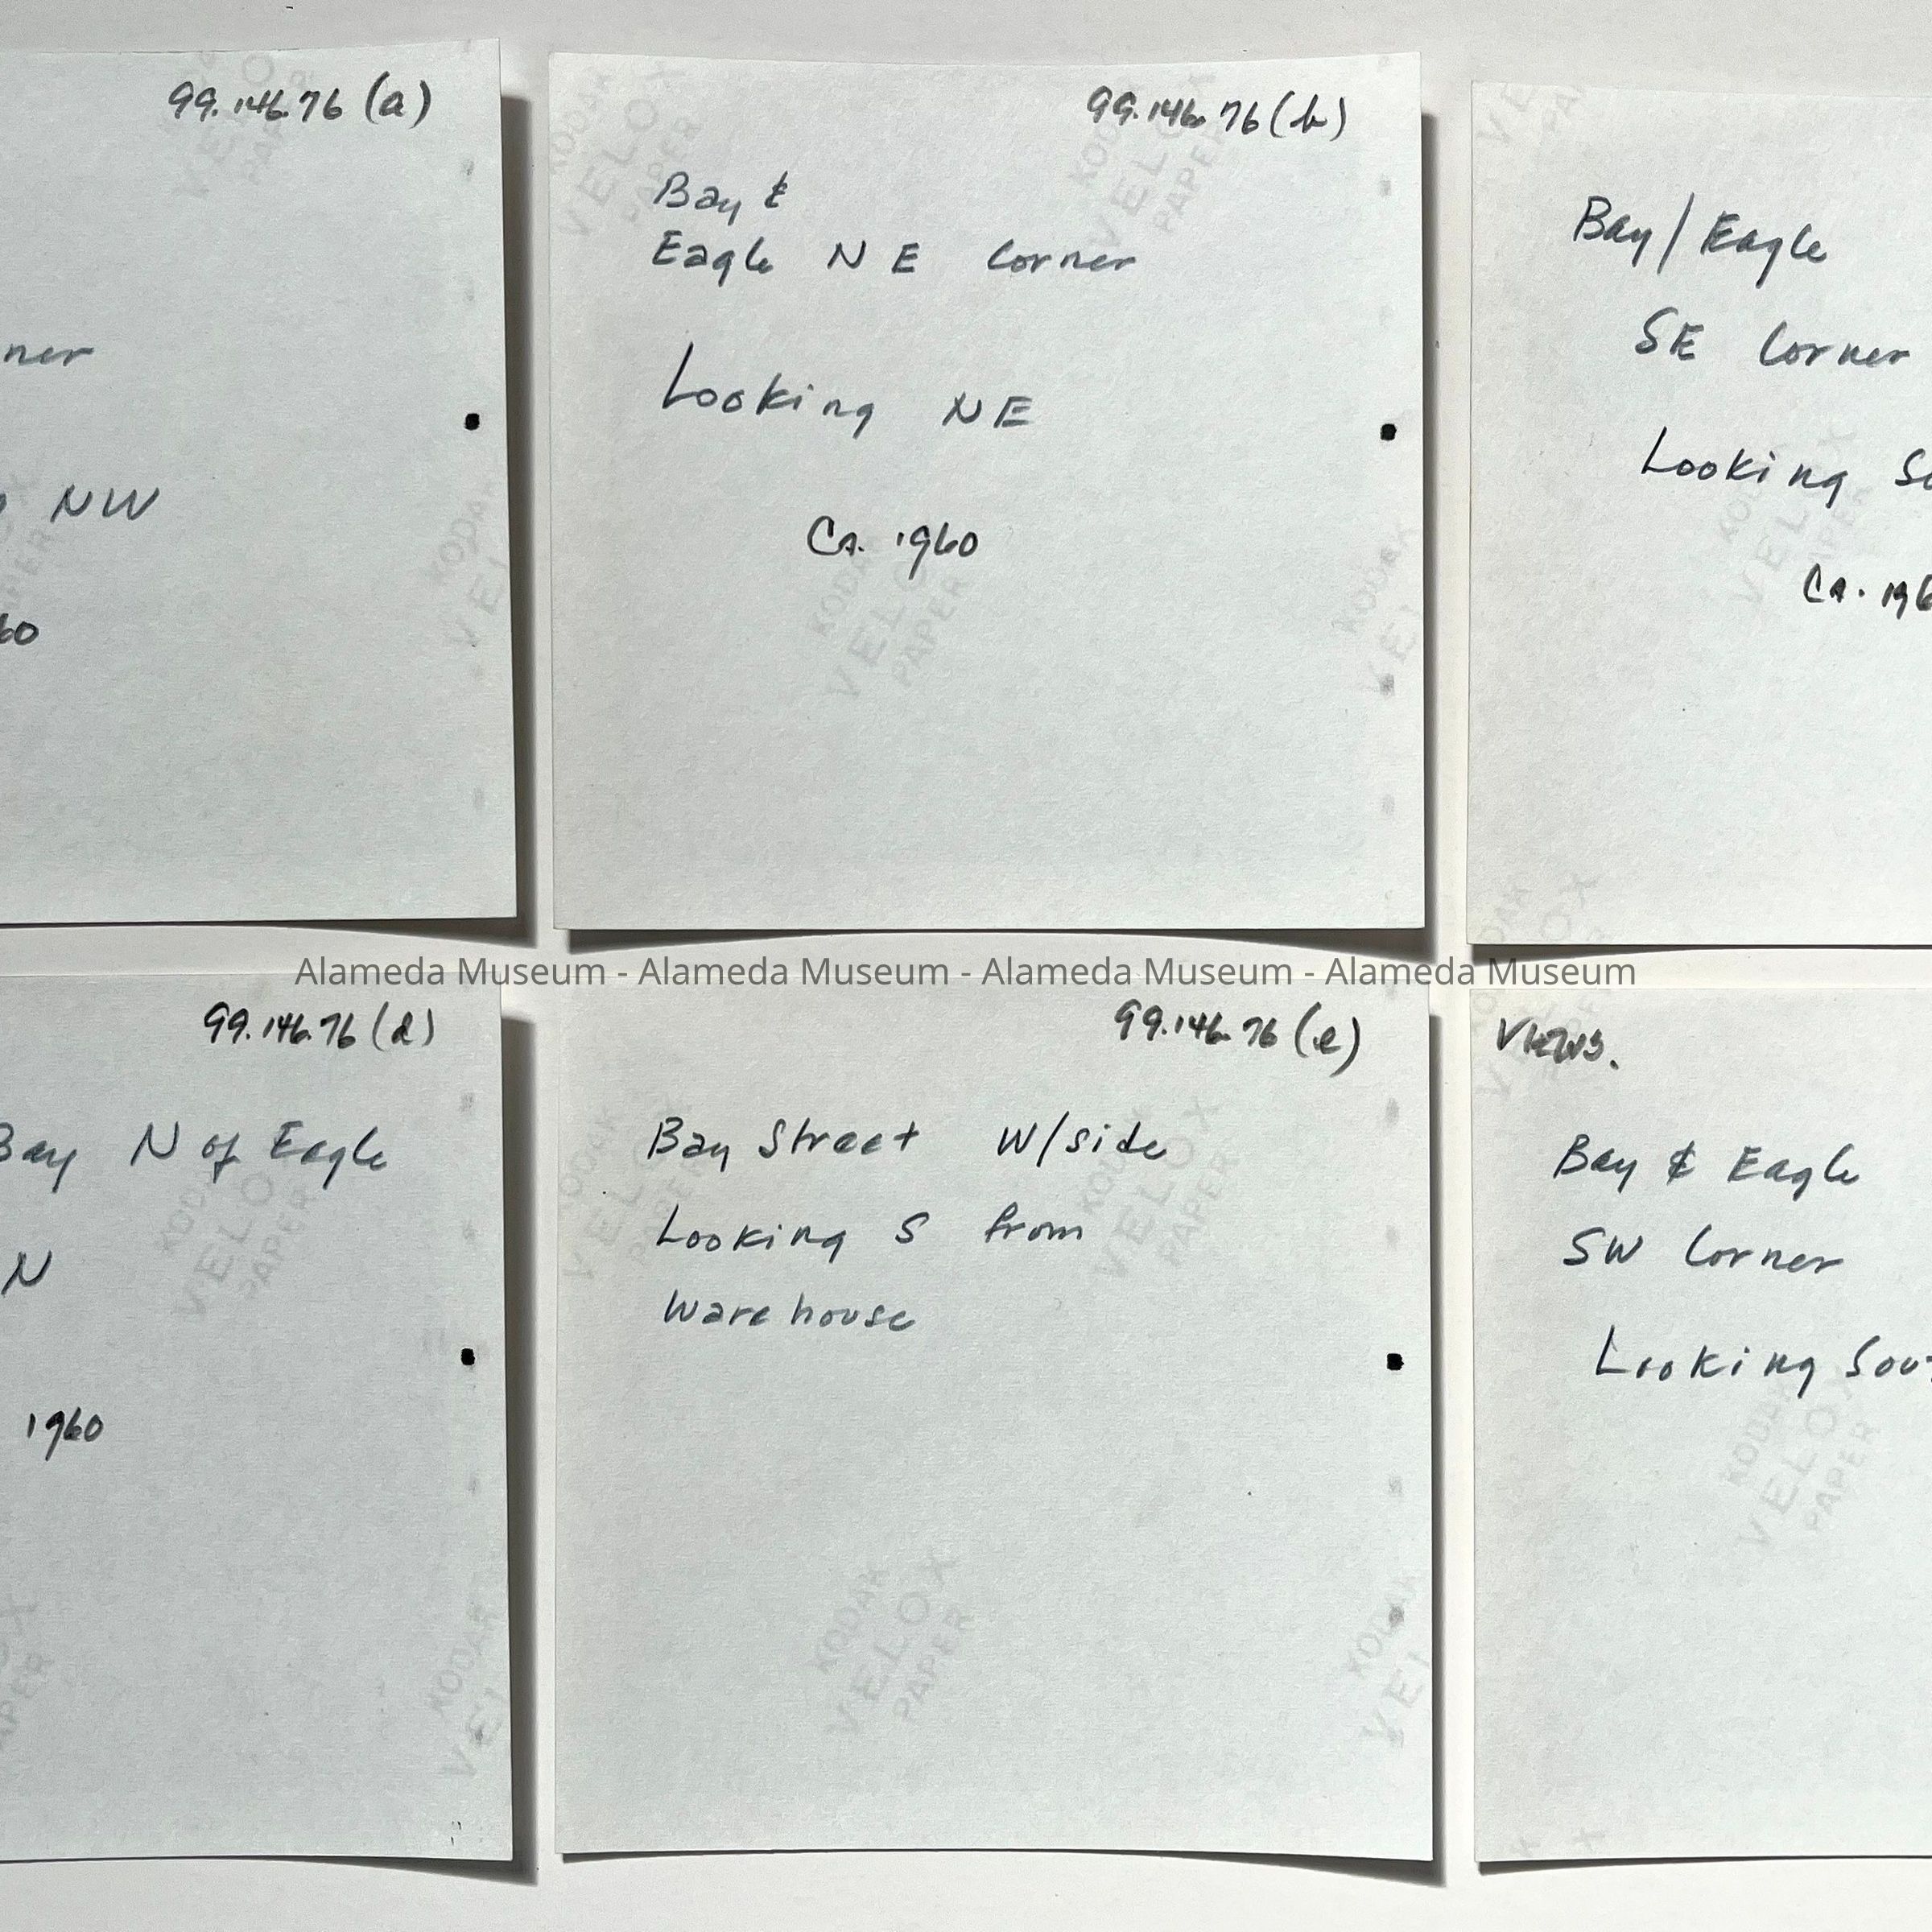 99.146.76 (a)
ner
NW
60
99.146.76 (b)
Bay &
Eagle N E Corner
Looking NE
Ca. 1960
Bay/Eagle
SE Corner
Looking So
Ca. 196
Alameda Museum - Alameda Museum - Alameda Museum - Alameda Museum
99.146.76 (d)
Bay N of Eagle
N
1960
99.146.76 (e)
Bay Street W/side
Looking S from
Warehouse
Views.
Bay & Eagle
SW Corner
Looking Sou
KODAK
VELOX
PAPER